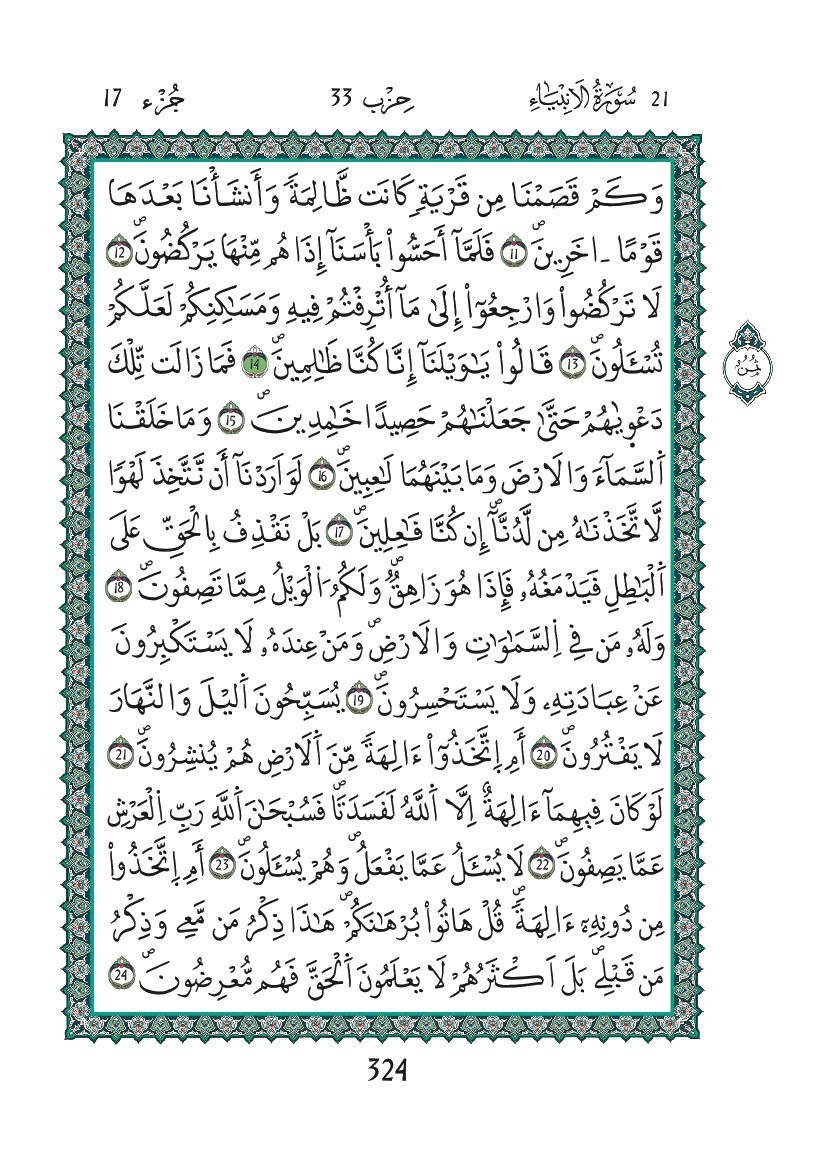 21 سُورَةُ الَانبِيَاءِ حِزْب 33 جُزْء 17
وَكَمْ قَصَمْنَا مِن قَرْيَةٍ كَانَت ظَّالِمَةً وَأَنشَأْنَا بَعْدَهَا
قَوْمًا ـاخَرِينَۖ 11 فَلَمَّآ أَحَسُّواْ بَأْسَنَآ إِذَا هُم مِّنْهَا يَرْكُضُونَۖ 12
لَا تَرْكُضُواْ وَارْجِعُوٓاْ إِلَىٰ مَآ أُتْرِفْتُمْ فِيهِ وَمَسَٰكِنِكُمْ لَعَلَّكُمْ
تُسْـَٔلُونَۖ 13 قَالُواْ يَٰوَيْلَنَآ إِنَّا كُنَّا ظَٰلِمِينَۖ 14 فَمَا زَالَت تِّلْكَ
دَعْوِيٰهُمْ حَتَّىٰ جَعَلْنَٰهُمْ حَصِيدًا خَٰمِدِينَۖ 15 وَمَا خَلَقْنَا
اَلسَّمَآءَ وَالَارْضَ وَمَا بَيْنَهُمَا لَٰعِبِينَۖ 16 لَوَ اَرَدْنَآ أَن نَّتَّخِذَ لَهْوًا
لَّاتَّخَذْنَٰهُ مِن لَّدُنَّآۖ إِن كُنَّا فَٰعِلِينَۖ 17 بَلْ نَقْذِفُ بِالْحَقِّ عَلَى
اَلْبَٰطِلِ فَيَدْمَغُهُۥ فَإِذَا هُوَ زَاهِقٌۖ وَلَكُمُ اُلْوَيْلُ مِمَّا تَصِفُونَۖ 18
وَلَهُۥ مَن فِي اِلسَّمَٰوَٰتِ وَالَارْضِۖ وَمَنْ عِندَهُۥ لَا يَسْتَكْبِرُونَ
عَنْ عِبَادَتِهِۦ وَلَا يَسْتَحْسِرُونَۖ 19 يُسَبِّحُونَ اَليْلَ وَالنَّهَارَ
لَا يَفْتُرُونَۖ 20 أَمِ اِتَّخَذُوٓاْ ءَالِهَةً مِّنَ اَلَارْضِ هُمْ يُنشِرُونَۖ 21
لَوْ كَانَ فِيهِمَآ ءَالِهَةٌ اِلَّا اَللَّهُ لَفَسَدَتَاۖ فَسُبْحَٰنَ اَللَّهِ رَبِّ اِلْعَرْشِ
عَمَّا يَصِفُونَۖ 22 لَا يُسْـَٔلُ عَمَّا يَفْعَلُۖ وَهُمْ يُسْـَٔلُونَۖ 23 أَمِ اِتَّخَذُواْ
مِن دُونِهِۦٓ ءَالِهَةًۖ قُلْ هَاتُواْ بُرْهَٰنَكُمْۖ هَٰذَا ذِكْرُ مَن مَّعِے وَذِكْرُ
مَن قَبْلِےۖ بَلَ اَكْثَرُهُمْ لَا يَعْلَمُونَ اَلْحَقَّ فَهُم مُّعْرِضُونَۖ 24
ثُمُنُ
324